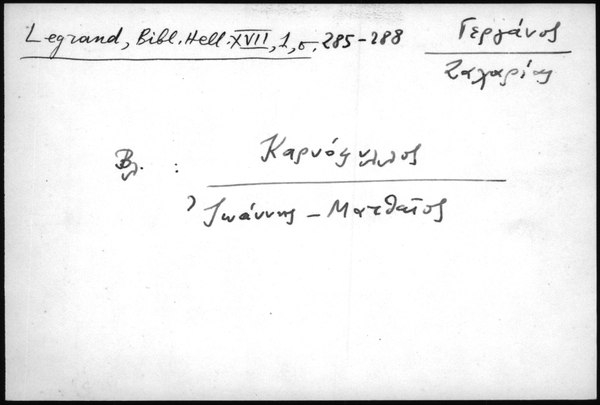 Legrand, Bibl. Hell. XVII, 1, σ. 285-288
Γεργάνος
Ζαχαρίας
Βλ. :
Καρυόφυλλος
Ἰωάννης - Ματθαῖος